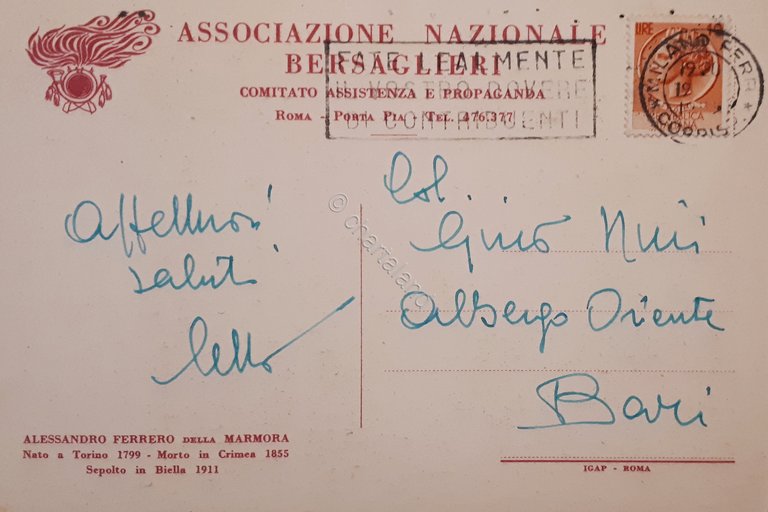 ASSOCIAZIONE NAZIONALE
BERSAGLIERI
COMITATO ASSISTENZA E PROPAGANDA
ROMA - PORTA PIA - TEL. 476.377
FATE LEALMENTE
IL VOSTRO DOVERE
DI CONTRIBUENTI
LIRE
MILANO FERR
19-20
12
CORRIS
Affettuosi
saluti
Lello
Col.
Gino
Albergo Oriente
Bari
© chartaland
ALESSANDRO FERRERO DELLA MARMORA
Nato a Torino 1799 - Morto in Crimea 1855
Sepolto in Biella 1911
IGAP - ROMA